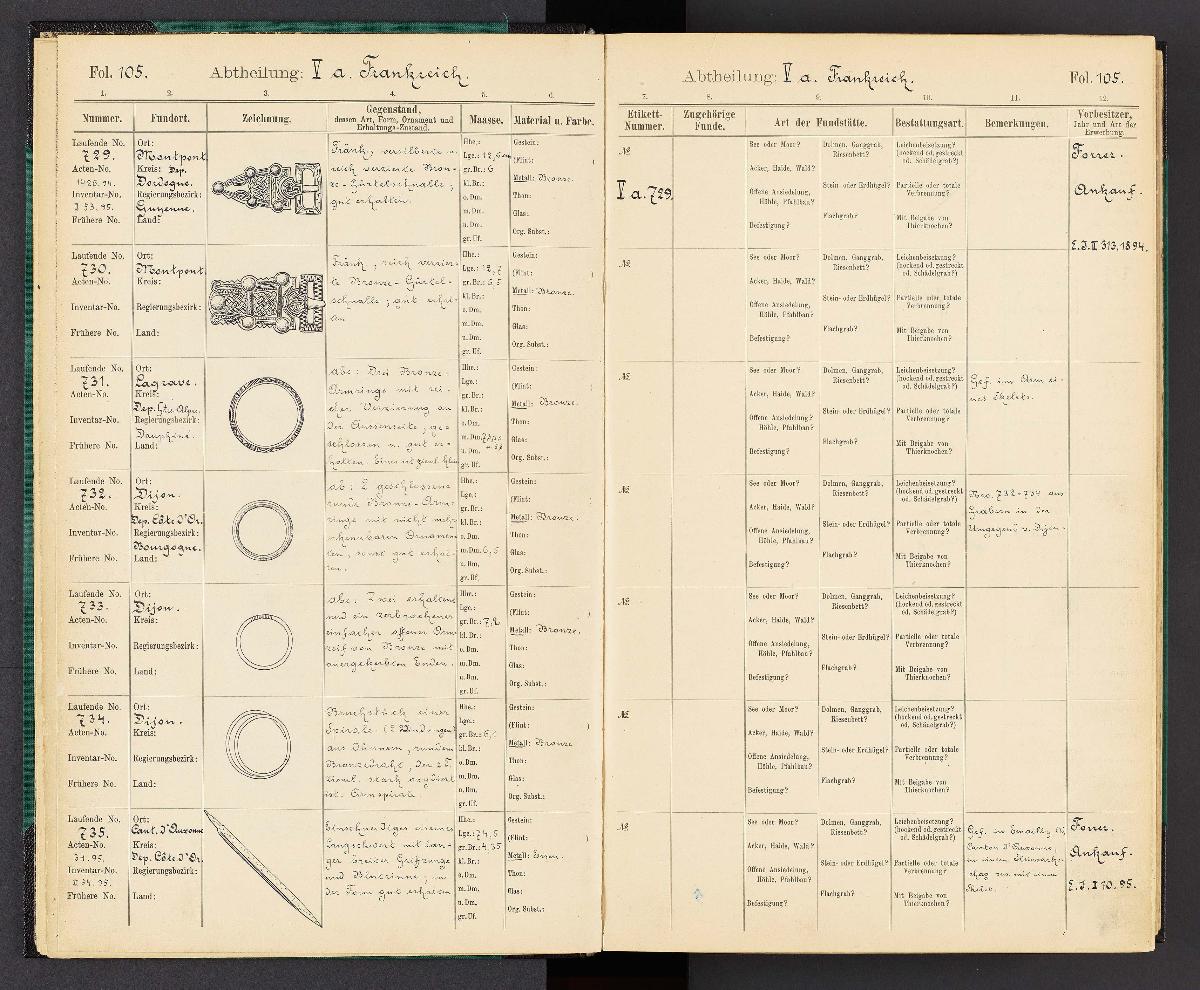 Fol. 105. Abtheilung: V a. Frankreich.
1. 2. 3. 4. 5. 6.
Nummer. Fundort. Zeichnung. Gegenstand, dessen Art, Form, Ornament und Erhaltungs-Zustand. Maasse. Material u. Farbe.
Laufende No.
729.
Acten-No.
1426.94.
Inventar-No.
I 53.95.
Frühere No.
Ort:
Montpont
Kreis: Dep.
Dordogne.
Regierungsbezirk:
Guyenne.
Land:
Fränk., versilberte u.
reich verzierte Bron-
ze-Gürtelschnalle;
gut erhalten.
Hhe.:
Lge.: 12,6
gr. Br.: 6
kl. Br.:
o. Dm.
m. Dm.
u. Dm.
gr. Uf.
Gestein:
(Flint: )
Metall: Bronze.
Thon:
Glas:
Org. Subst.:
Laufende No.
730.
Acten-No.
Inventar-No.
Frühere No.
Ort:
Montpont.
Kreis:
Regierungsbezirk:
Land:
Fränk., reich verzier-
te Bronze-Gürtel-
schnalle; gut erhal-
ten.
Hhe.:
Lge.: 12,7
gr. Br.: 6,5
kl. Br.:
o. Dm.
m. Dm.
u. Dm.
gr. Uf.
Gestein:
(Flint: )
Metall: Bronze.
Thon:
Glas:
Org. Subst.:
Laufende No.
731.
Acten-No.
Inventar-No.
Frühere No.
Ort:
Lagrave.
Kreis:
Dep. Htes Alpes.
Regierungsbezirk:
Dauphiné.
Land:
abc: Drei Bronze-
Armringe mit rei-
cher Verzierung an
der Aussenseite, ge-
schlossen u. gut er-
halten.
Hhe.:
Lge.:
gr. Br.:
kl. Br.:
o. Dm.
m. Dm.
u. Dm.
gr. Uf.
Gestein:
(Flint: )
Metall: Bronze.
Thon:
Glas:
Org. Subst.:
Laufende No.
732.
Acten-No.
Inventar-No.
Frühere No.
Ort:
Dijon.
Kreis:
Dep. Côte d'Or.
Regierungsbezirk:
Bourgogne.
Land:
ab: 2 geschlossene
runde Bronze-Arm-
ringe mit nicht mehr
erkennbaren Ornamen-
ten, sonst gut erhal-
ten.
Hhe.:
Lge.:
gr. Br.:
kl. Br.:
o. Dm.
m. Dm. 6,5
u. Dm.
gr. Uf.
Gestein:
(Flint: )
Metall: Bronze.
Thon:
Glas:
Org. Subst.:
Laufende No.
733.
Acten-No.
Inventar-No.
Frühere No.
Ort:
Dijon.
Kreis:
Regierungsbezirk:
Land:
abc: Zwei erhaltene
und ein zerbrochener
einfacher offener Arm-
reif von Bronze mit
quergekerbten Enden.
Hhe.:
Lge.:
gr. Br.: 7,2
kl. Br.:
o. Dm.
m. Dm.
u. Dm.
gr. Uf.
Gestein:
(Flint: )
Metall: Bronze.
Thon:
Glas:
Org. Subst.:
Laufende No.
734.
Acten-No.
Inventar-No.
Frühere No.
Ort:
Dijon.
Kreis:
Regierungsbezirk:
Land:
Bruchstück einer
Spirale (2 Windungen)
aus dünnem, rundem
Bronzedraht, der z. T.
zieml. stark oxydiert
ist. Armspirale.
Hhe.:
Lge.:
gr. Br.:
kl. Br.:
o. Dm.
m. Dm.
u. Dm.
gr. Uf.
Gestein:
(Flint: )
Metall: Bronze
Thon:
Glas:
Org. Subst.:
Laufende No.
735.
Acten-No.
31.95.
Inventar-No.
II 34.95.
Frühere No.
Ort:
Cant. d'Auxonne
Kreis:
Dep. Côte d'Or.
Regierungsbezirk:
Land:
Einschneidiges eisernes
Langschwert mit lan-
ger breiter Griffzunge
und Blutrinne; in
der Form gut erhalten
Hhe.:
Lge.: 74,5
gr. Br.: 4,35
kl. Br.:
o. Dm.
m. Dm.
u. Dm.
gr. Uf.
Gestein:
(Flint: )
Metall: Eisen.
Thon:
Glas:
Org. Subst.:
Abtheilung: V a. Frankreich. Fol. 105.
7. 8. 9. 10. 11. 12.
Etikett-Nummer. Zugehörige Funde. Art der Fundstätte. Bestattungsart. Bemerkungen. Vorbesitzer, Jahr und Art der Erwerbung.
№
V a. 729.
See oder Moor? Dolmen, Ganggrab, Riesenbett?
Acker, Haide, Wald?
Stein- oder Erdhügel?
Offene Ansiedelung, Höhle, Pfahlbau?
Flachgrab?
Befestigung?
Leichenbeisetzung? (hockend od. gestreckt od. Schädelgrab?)
Partielle oder totale Verbrennung?
Mit Beigabe von Thierknochen?
Forrer.
Ankauf.
E. J. II 313, 1894.
№
See oder Moor? Dolmen, Ganggrab, Riesenbett?
Acker, Haide, Wald?
Stein- oder Erdhügel?
Offene Ansiedelung, Höhle, Pfahlbau?
Flachgrab?
Befestigung?
Leichenbeisetzung? (hockend od. gestreckt od. Schädelgrab?)
Partielle oder totale Verbrennung?
Mit Beigabe von Thierknochen?
№
See oder Moor? Dolmen, Ganggrab, Riesenbett?
Acker, Haide, Wald?
Stein- oder Erdhügel?
Offene Ansiedelung, Höhle, Pfahlbau?
Flachgrab?
Befestigung?
Leichenbeisetzung? (hockend od. gestreckt od. Schädelgrab?)
Partielle oder totale Verbrennung?
Mit Beigabe von Thierknochen?
Gef. am Arm ei-
nes Skelets.
№
See oder Moor? Dolmen, Ganggrab, Riesenbett?
Acker, Haide, Wald?
Stein- oder Erdhügel?
Offene Ansiedelung, Höhle, Pfahlbau?
Flachgrab?
Befestigung?
Leichenbeisetzung? (hockend od. gestreckt od. Schädelgrab?)
Partielle oder totale Verbrennung?
Mit Beigabe von Thierknochen?
Nro. 732-734 aus
Gräbern in der
Umgegend v. Dijon.
№
See oder Moor? Dolmen, Ganggrab, Riesenbett?
Acker, Haide, Wald?
Stein- oder Erdhügel?
Offene Ansiedelung, Höhle, Pfahlbau?
Flachgrab?
Befestigung?
Leichenbeisetzung? (hockend od. gestreckt od. Schädelgrab?)
Partielle oder totale Verbrennung?
Mit Beigabe von Thierknochen?
№
See oder Moor? Dolmen, Ganggrab, Riesenbett?
Acker, Haide, Wald?
Stein- oder Erdhügel?
Offene Ansiedelung, Höhle, Pfahlbau?
Flachgrab?
Befestigung?
Leichenbeisetzung? (hockend od. gestreckt od. Schädelgrab?)
Partielle oder totale Verbrennung?
Mit Beigabe von Thierknochen?
№
See oder Moor? Dolmen, Ganggrab, Riesenbett?
Acker, Haide, Wald?
Stein- oder Erdhügel?
Offene Ansiedelung, Höhle, Pfahlbau?
Flachgrab?
Befestigung?
Leichenbeisetzung? (hockend od. gestreckt od. Schädelgrab?)
Partielle oder totale Verbrennung?
Mit Beigabe von Thierknochen?
Gef. in
Canton d'Auxonne,
in einem
mit einem
Forrer.
Ankauf.
E. J. I 10. 95.